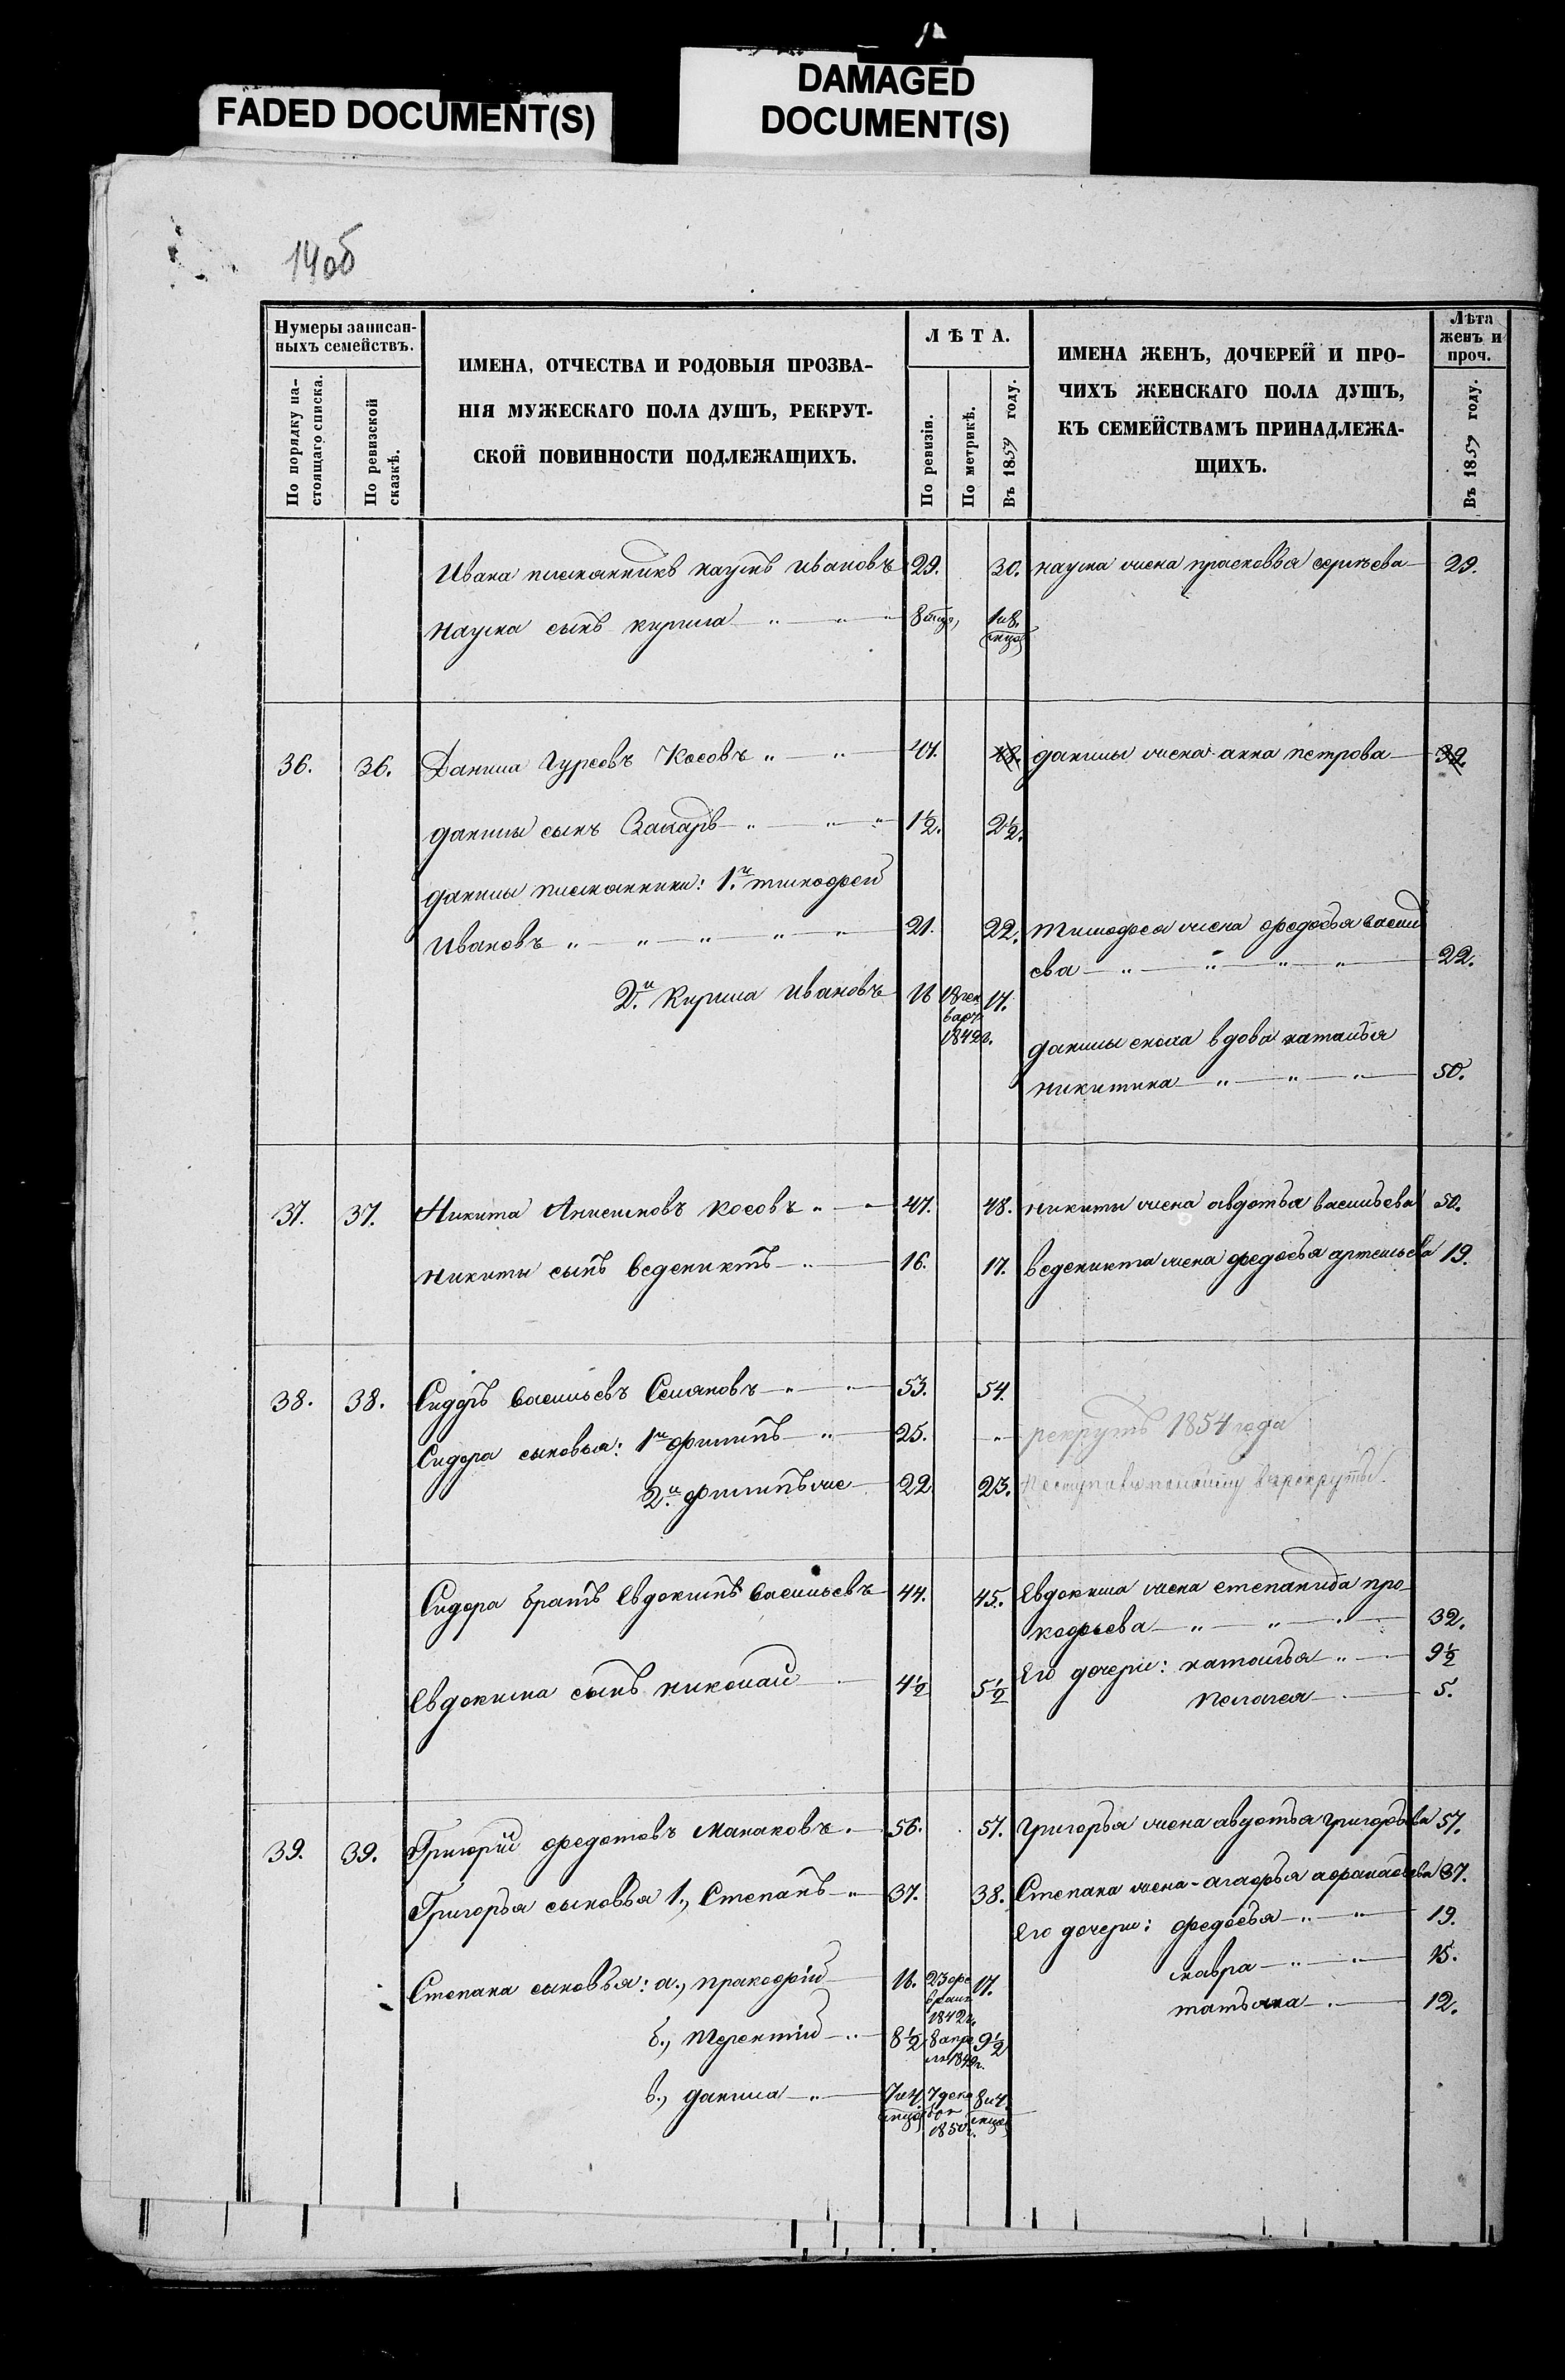 FADED DOCUMENT(S)
DAMAGED
DOCUMENT(S)
14об
Нумеры записан-
ныхъ семействъ.
По порядку на-
стоящаго списка.
По ревизской
сказкѣ.
ИМЕНА, ОТЧЕСТВА И РОДОВЫЯ ПРОЗВА-
НІЯ МУЖЕСКАГО ПОЛА ДУШЪ, РЕКРУТ-
СКОЙ ПОВИННОСТИ ПОДЛЕЖАЩИХЪ.
ЛѢТА.
По ревизіи.
По метрикѣ.
Въ 1859 году.
ИМЕНА ЖЕНЪ, ДОЧЕРЕЙ И ПРО-
ЧИХЪ ЖЕНСКАГО ПОЛА ДУШЪ,
КЪ СЕМЕЙСТВАМЪ ПРИНАДЛЕЖА-
ЩИХЪ.
Лѣта
женъ и
проч.
Въ 1859 году.
Ивана племянникъ наумъ ивановъ 29. 30. наума жена прасковья 29.
наума сынъ кирила 8 мцо, 1 и 8. мцо
36. 36. Данила Гуреевъ Косовъ 47. 48. данилы жена анна петрова 39.
данилы сынъ Захаръ 1½. 2½.
данилы племянники: 1й тимофей
Ивановъ 21. 22. тимофея жена федосья васил
ева 22.
2й Кирила Ивановъ 16 18 ген
варя
1842 г. 17.
данилы сноха вдова наталья
никитина 50.
37. 37. Никита Анисимовъ Косовъ 47. 48. никиты жена авдотья васильева 50.
никиты сынъ ведениктъ 16. 17. веденикта жена федосья артемьева 19.
38. 38. Сидоръ васильевъ Семаковъ 53. 54.
Сидора сыновья: 1й филипъ 25. рекрутъ 1854 года
2й филипъ же 22 23.
Сидора братъ Евдокимъ васильевъ 44. 45. Евдокима жена степанида про
кофьева 32.
Его дочери: наталья 9½
Евдокима сынъ николай 4½ 5½
пелагея 5.
39. 39. Григорій федотовъ Манаковъ. 56. 57. григорья жена авдотья григорьева 57.
Григорья сыновья 1., Степанъ 37. 38. Степана жена агафья афанасьева 37.
Его дочери: федосья 19.
Степана сыновья: а., пракофій 16. 23 фе
враля
1842 г. 17.
мавра 15.
татьяна 12.
б., терентій 8½ 8 апре
ля 1849 г. 9½
в., данила 7 и 4. мцо 7 дека
бря
1850 г. 8 и 4. мцо